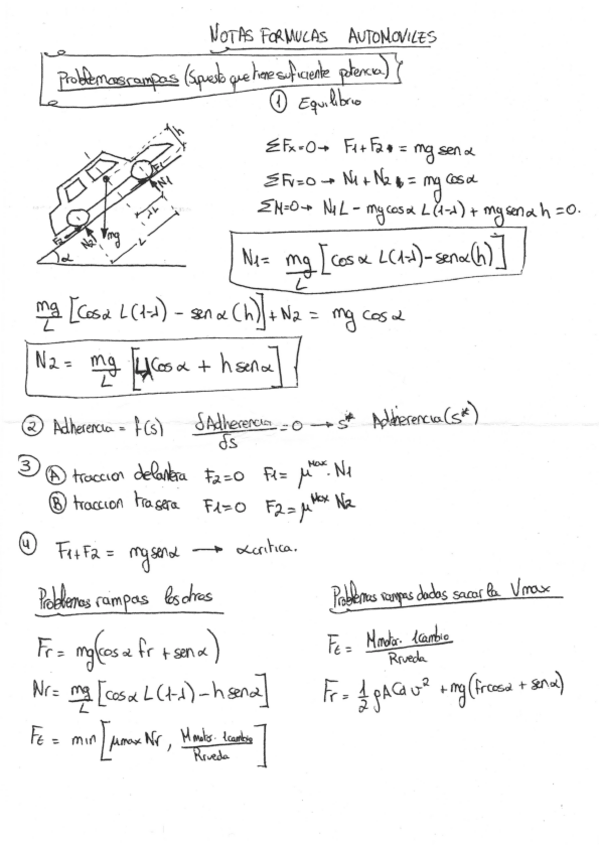 NOTAS FORMULAS AUTOMOVILES
Problemas rampas (Supuesto que tiene suficiente potencia)
① Equilibrio
ΣFx=0 → F1+F2 = mg senα
ΣFy=0 → N1+N2 = mg cosα
ΣM=0 → N1L − mgcosα L(1-λ) + mg senα h = 0.
h
F1
N1
λL
L
F2
N2
mg
α
N1 = mg/L [cosα L(1-λ) - senα(h)]
mg/L [cosα L(1-λ) − senα(h)] + N2 = mg cosα
N2 = mg/L [λLcosα + h senα]
② Adherencia = f(s) δAdherencia/δs = 0 → s* Adherencia(s*)
③ Ⓐ traccion delantera F2=0 F1= μmax · N1
Ⓑ traccion trasera F1=0 F2= μmax N2
④ F1+F2 = mg senα → α critica.
Problemas rampas los otros
Fr = mg(cosα fr + senα)
Nr = mg/L [cosα L(1-λ) - h senα]
FE = min [μmax Nr, Mmotor · icambio/Rrueda]
Problemas rampas dadas sacar la Vmax
FE = Mmotor · icambio/Rrueda
Fr = 1/2 ρACd v² + mg(fr cosα + senα)